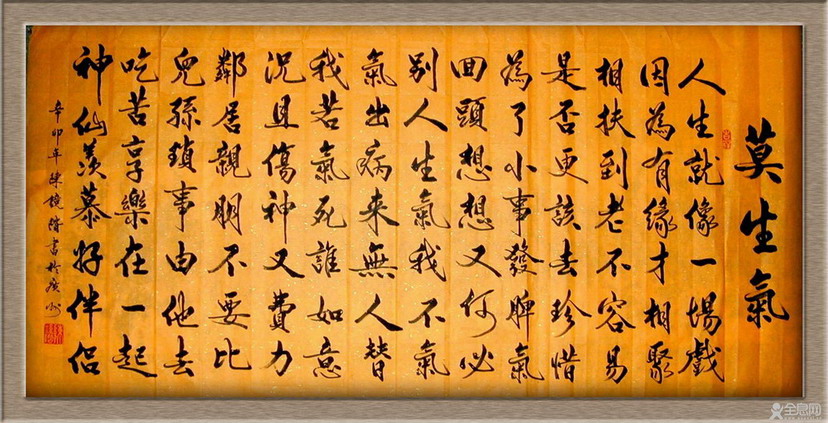 莫生氣
人生就像一場戲
因為有緣才相聚
相扶到老不容易
是否更該去珍惜
為了小事發脾氣
回頭想想又何必
別人生氣我不氣
氣出病来無人替
我若氣死誰如意
況且傷神又費力
鄰居親朋不要比
兒孫瑣事由他去
吃苦享樂在一起
神仙羡慕好伴侣
辛卯年陳書於廣州
全息网